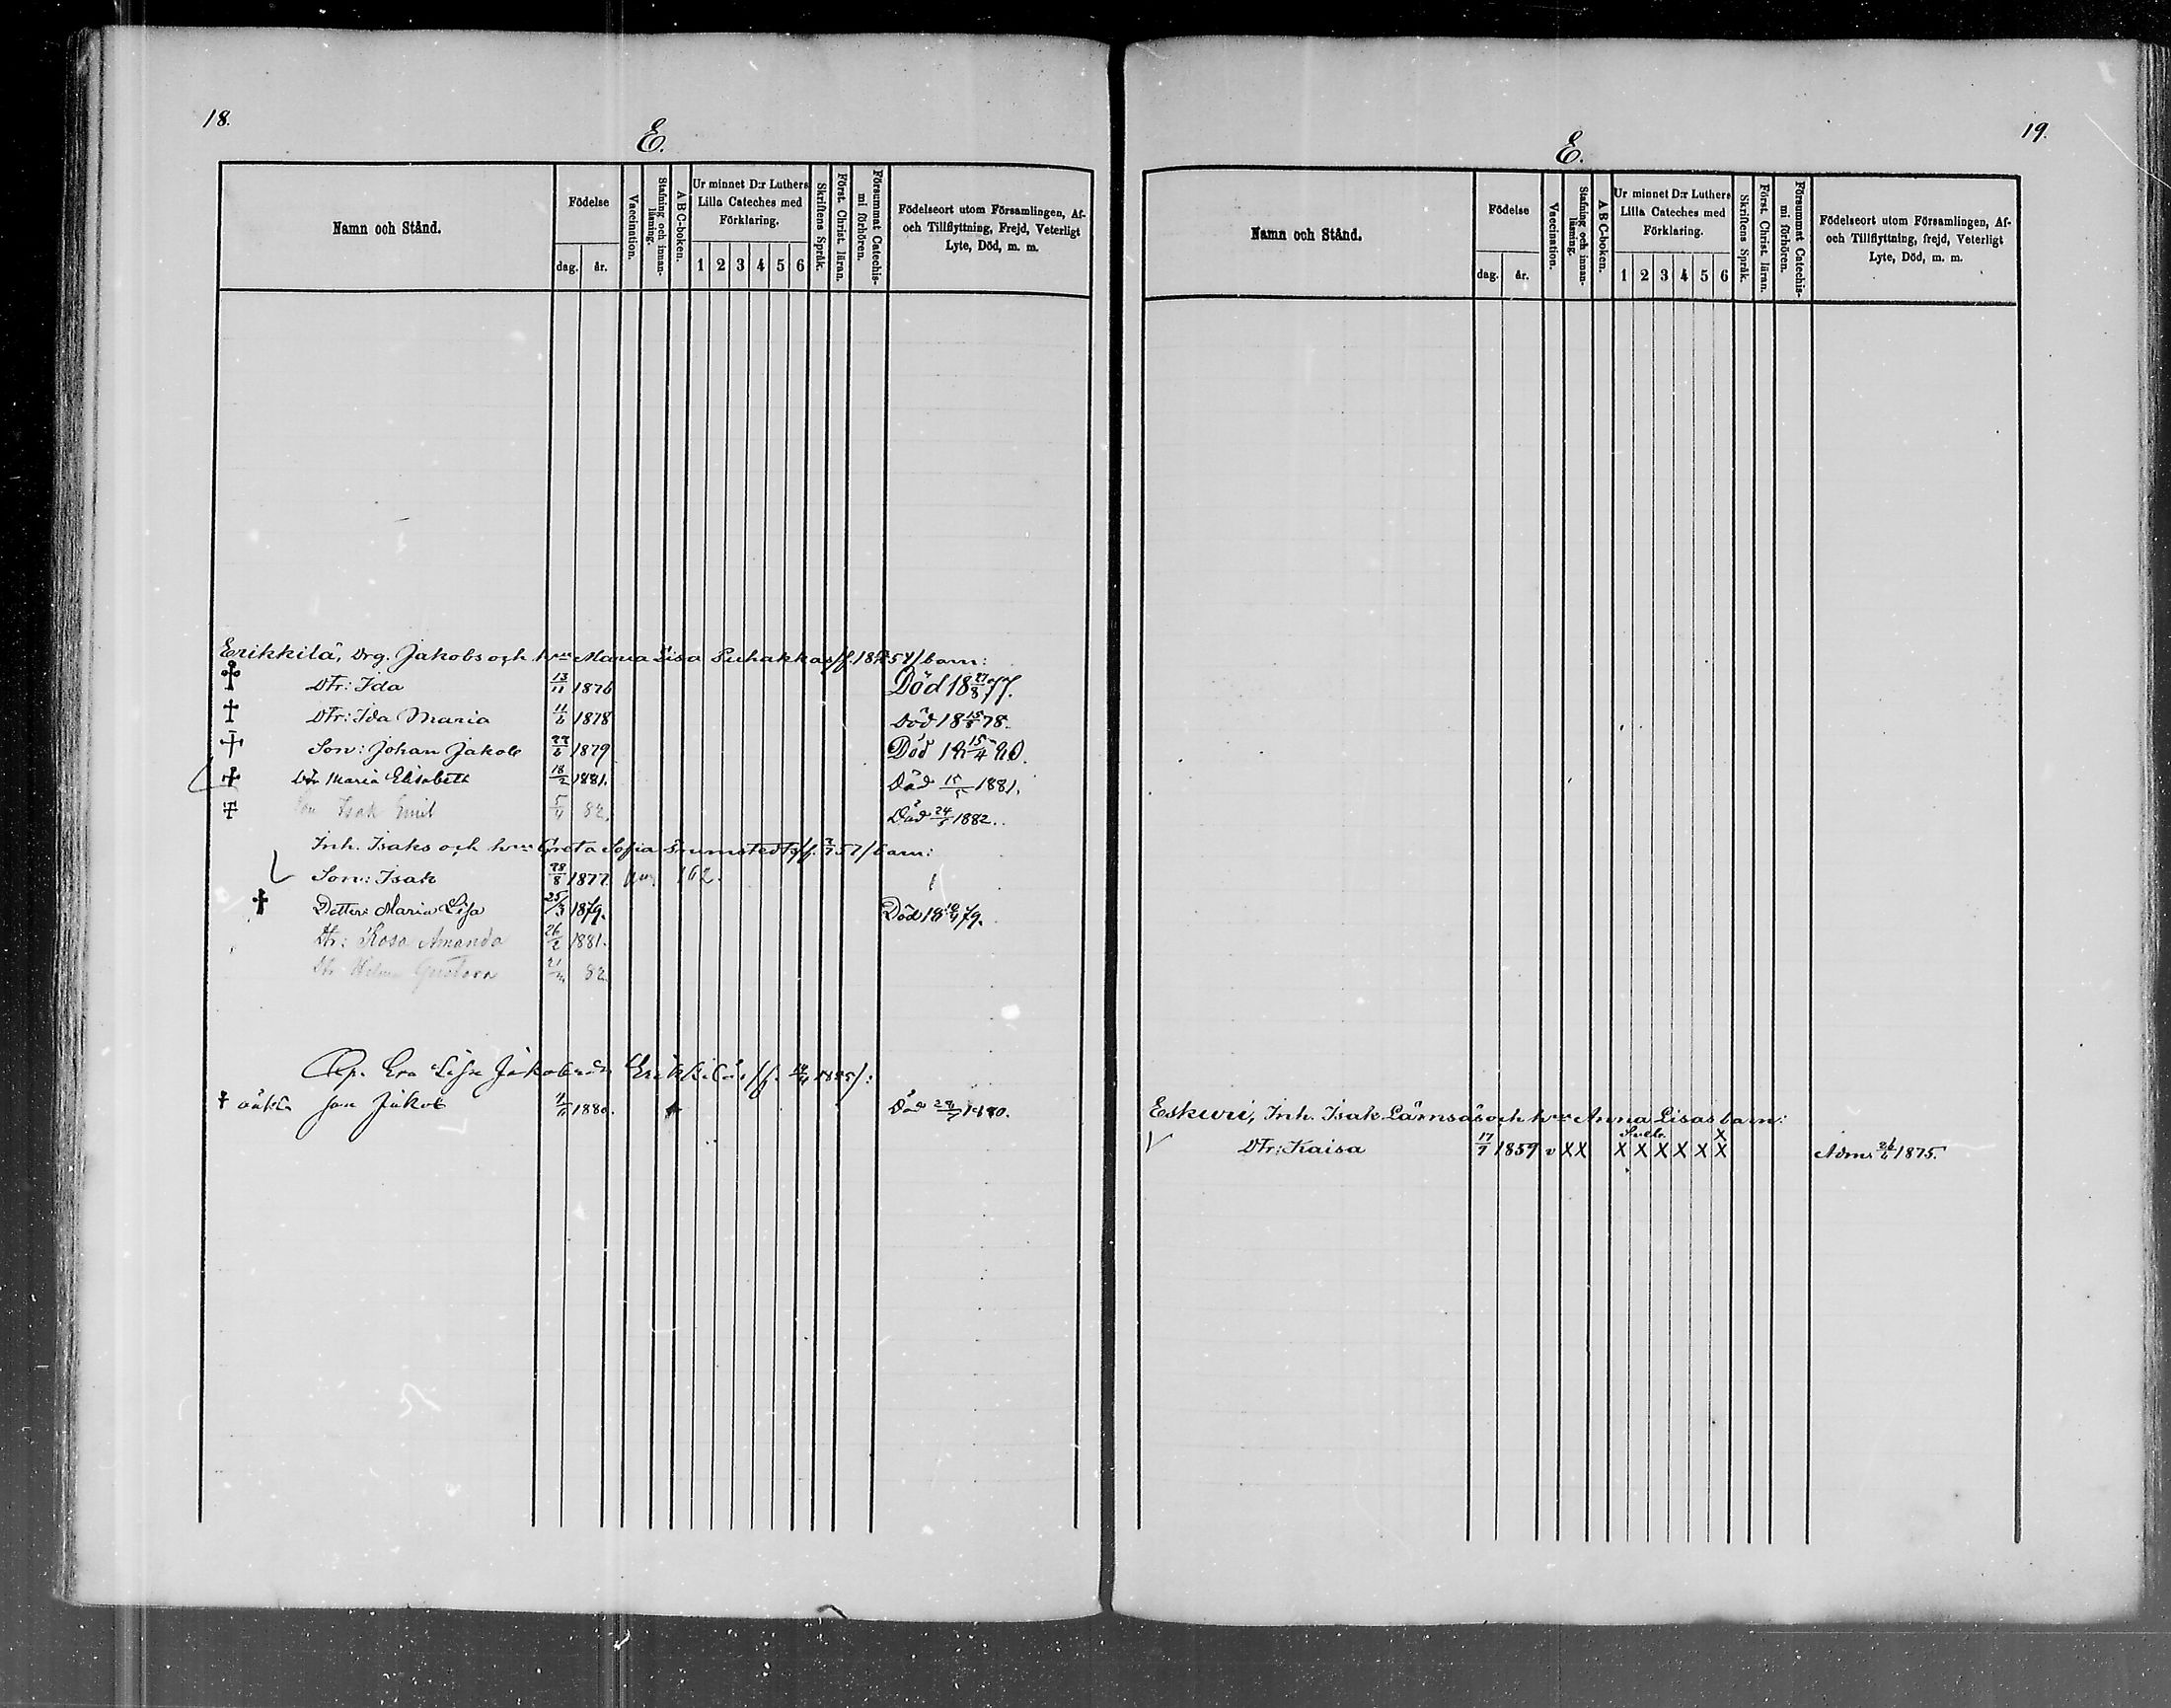 18.
E.
Namn och Stånd.
Födelse
dag. år.
Vaccination.
Stafning och innan-läsning.
A B C-boken.
Ur minnet D:r Luthers
Lilla Cateches med
Förklaring.
1 2 3 4 5 6
Skriftens Språk.
Först. Christ. läran.
Försummat Catechis-mi förhören.
Födelseort utom Församlingen, Af-
och Tillflyttning, Frejd, Veterligt
Lyte, Död, m. m.
Erikkilä, Drg. Jakobs och hru Maria Lisa Puhakkas barn:
Dtr: Ida 13/11 1876 Död 18 27/8 77.
Dtr: Ida Maria 11/6 1878 Död 18 15/8 78.
Son: Johan Jakob 22/6 1879 Död 18 15/4 80.
Dtr Maria Elisabeth 18/2 1881. Död 15/5 1881.
Son Isak Emil 5/4 82. Död 24/5 1882.
Inh. Isaks och hru Greta Sofia 57/barn:
Son: Isak 28/8 1877 162.
Dotter: Maria Lisa 25/3 1879. Död 18 79.
Dtr: Rosa Amanda 26/2 1881.
Dtr Gustava 21 82.
Eva Lisa Jakobsdr Erikkiläs
oäkta son Jakob 1880. Död 1880.
19.
E.
Namn och Stånd.
Födelse
dag. år.
Vaccination.
Stafning och innan-läsning.
A B C-boken.
Ur minnet D:r Luthers
Lilla Cateches med
Förklaring.
1 2 3 4 5 6
Skriftens Språk.
Först. Christ. läran.
Försummat Catechis-mi förhören.
Födelseort utom Församlingen, Af-
och Tillflyttning, frejd, Veterligt
Lyte, Död, m. m.
Eskuri, Inh. Isak Lärnsäs och hru Anna Lisas barn:
X
Dtr: Kaisa 17/7 1859 v X X X X X X X X Adm. 26/6 1875.